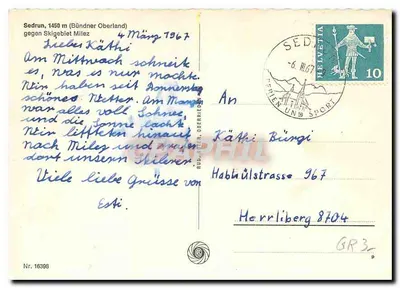 Sedrun, 1450 m (Bündner Oberland)
gegen Skigebiet Milez
4 März 1967
Liebes Käthi
Am Mittwoch schneite
es, was es nur mochte.
Wir haben seit Donnerstag
schönes Wetter. Am Morgen
war alles voll Schnee
und die Sonne lachte.
Wir liften hinauf
nach Milez und
dort unseren
Viele liebe Grüsse von
Esti.
Nr. 16398
SEDRUN
-6. III. 67
FERIEN UND SPORT
HELVETIA
10
An
Käthi Bürgi
Habülstrasse 967
Herrliberg 8704
GR3